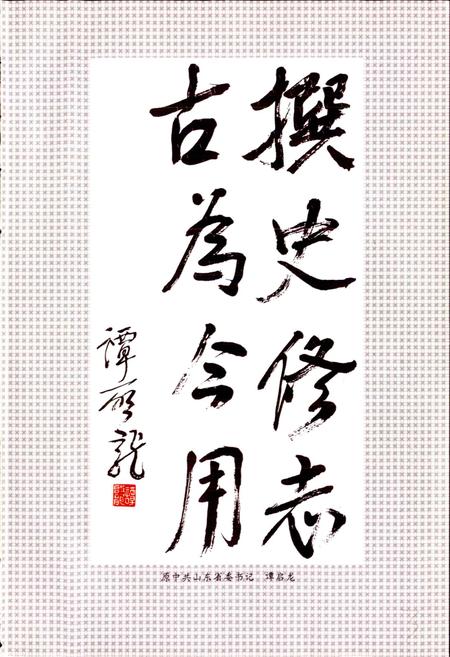 撰史修志
古為今用
譚啓龍
原中共山东省委书记　谭启龙